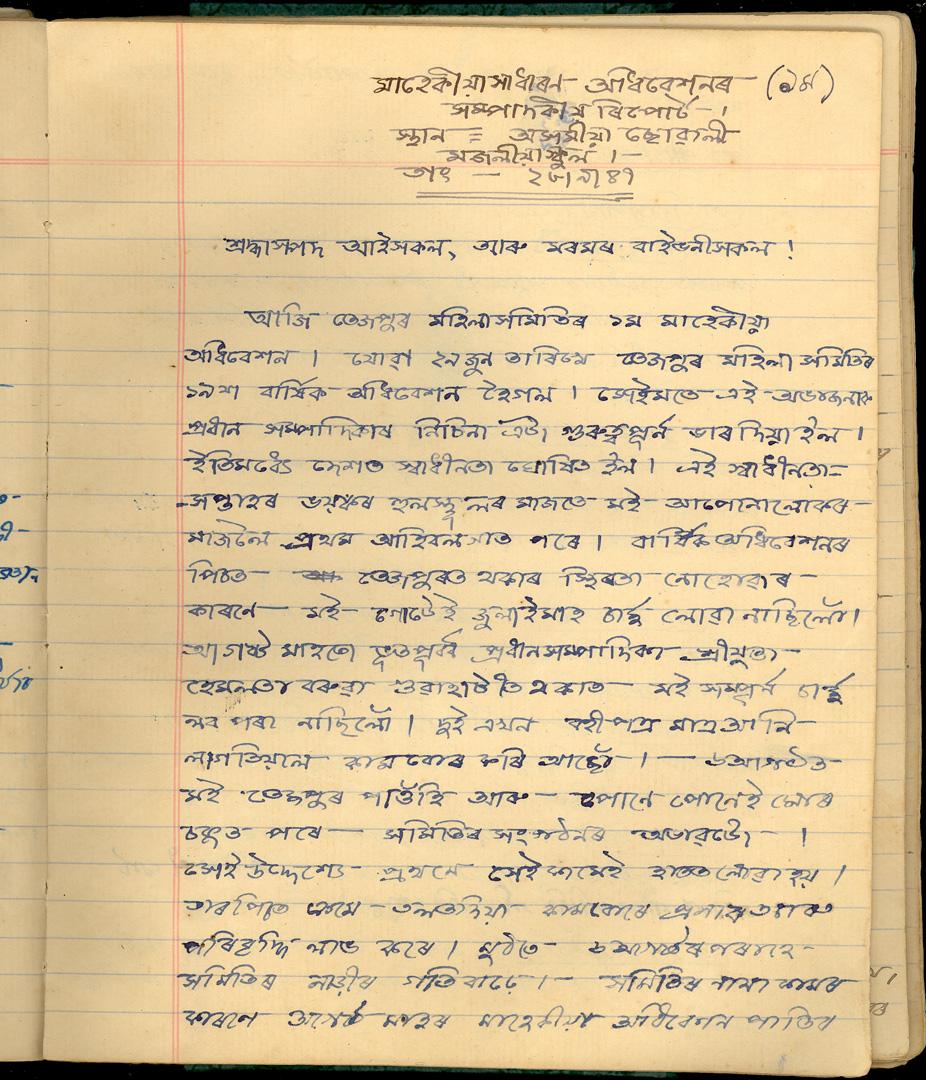 মাহেকীয়া সাধাৰণ অধিবেশনৰ (১ম)
সম্পাদকীয় ৰিপোৰ্ট ।
স্থান = অসমীয়া ছোৱালী
মজলীয়া স্কুল ।-
তাং — ২৮।৯।৪৭
শ্ৰদ্ধাস্পদ আইসকল, আৰু মৰমৰ বাইভনীসকল !
আজি তেজপুৰ মহিলা সমিতিৰ ১ম মাহেকীয়া
অধিবেশন । যোৱা ২৯ জুন তাৰিখে তেজপুৰ মহিলা সমিতিৰ
১৯শ বাৰ্ষিক অধিবেশন হৈগল । সেইমতে এই অভাজনাক
প্ৰধান সম্পাদিকাৰ নিচিনা এটা গুৰুত্বপূৰ্ন ভাৰ দিয়া হ'ল ।
ইতিমধ্যে দেশত স্বাধীনতা ঘোষিত হ'ল । এই স্বাধীনতা=
-সপ্তাহৰ ভয়ঙ্কৰ হুলস্থূলৰ মাজতে মই আপোনালোকৰ
মাজলৈ প্ৰথম আহিবলগাত পৰে । বাৰ্ষিক অধিবেশনৰ
পিচত তেজপুৰত থকাৰ স্থিৰতা নোহোৱাৰ
কাৰণে মই গোটেই জুলাই মাহ চাৰ্জ্জ লোৱা নাছিলোঁ ।
আগষ্ট মাহতো ভূতপূৰ্ব্ব প্ৰধান সম্পাদিকা শ্ৰীযুতা
হেমলতা বৰুৱা গুৱাহাটীত থকাত মই সম্পূৰ্ন চাৰ্জ্জ
লব পৰা নাছিলোঁ । দুই এখন বহীপত্ৰ মাত্ৰ আনি
লাগতিয়াল কাম বোৰ কৰি আছোঁ । — ৬ আগষ্টত
মই তেজপুৰ পাওঁহি আৰু — পোনে পোনেই মোৰ
চকুত পৰে — সমিতিৰ সংগঠনৰ অভাৱটো — ।
সেই উদ্দেশ্যে প্ৰথমে সেই কামেই হাতত লোৱা হয় ।
তাৰ পিচত ক্ৰমে তলত দিয়া কামবোৰে প্ৰসাৰতা আৰু
পৰিবৃদ্ধি লাভ কৰে । মুঠতে ৬ আগষ্টৰ পৰাহে -
সমিতিৰ নাড়ীৰ গতি বাঢ়ে ।- সমিতিৰ নানা কামৰ
কাৰণে আগষ্ট মাহৰ মাহেকীয়া অধিবেশন পাতিব